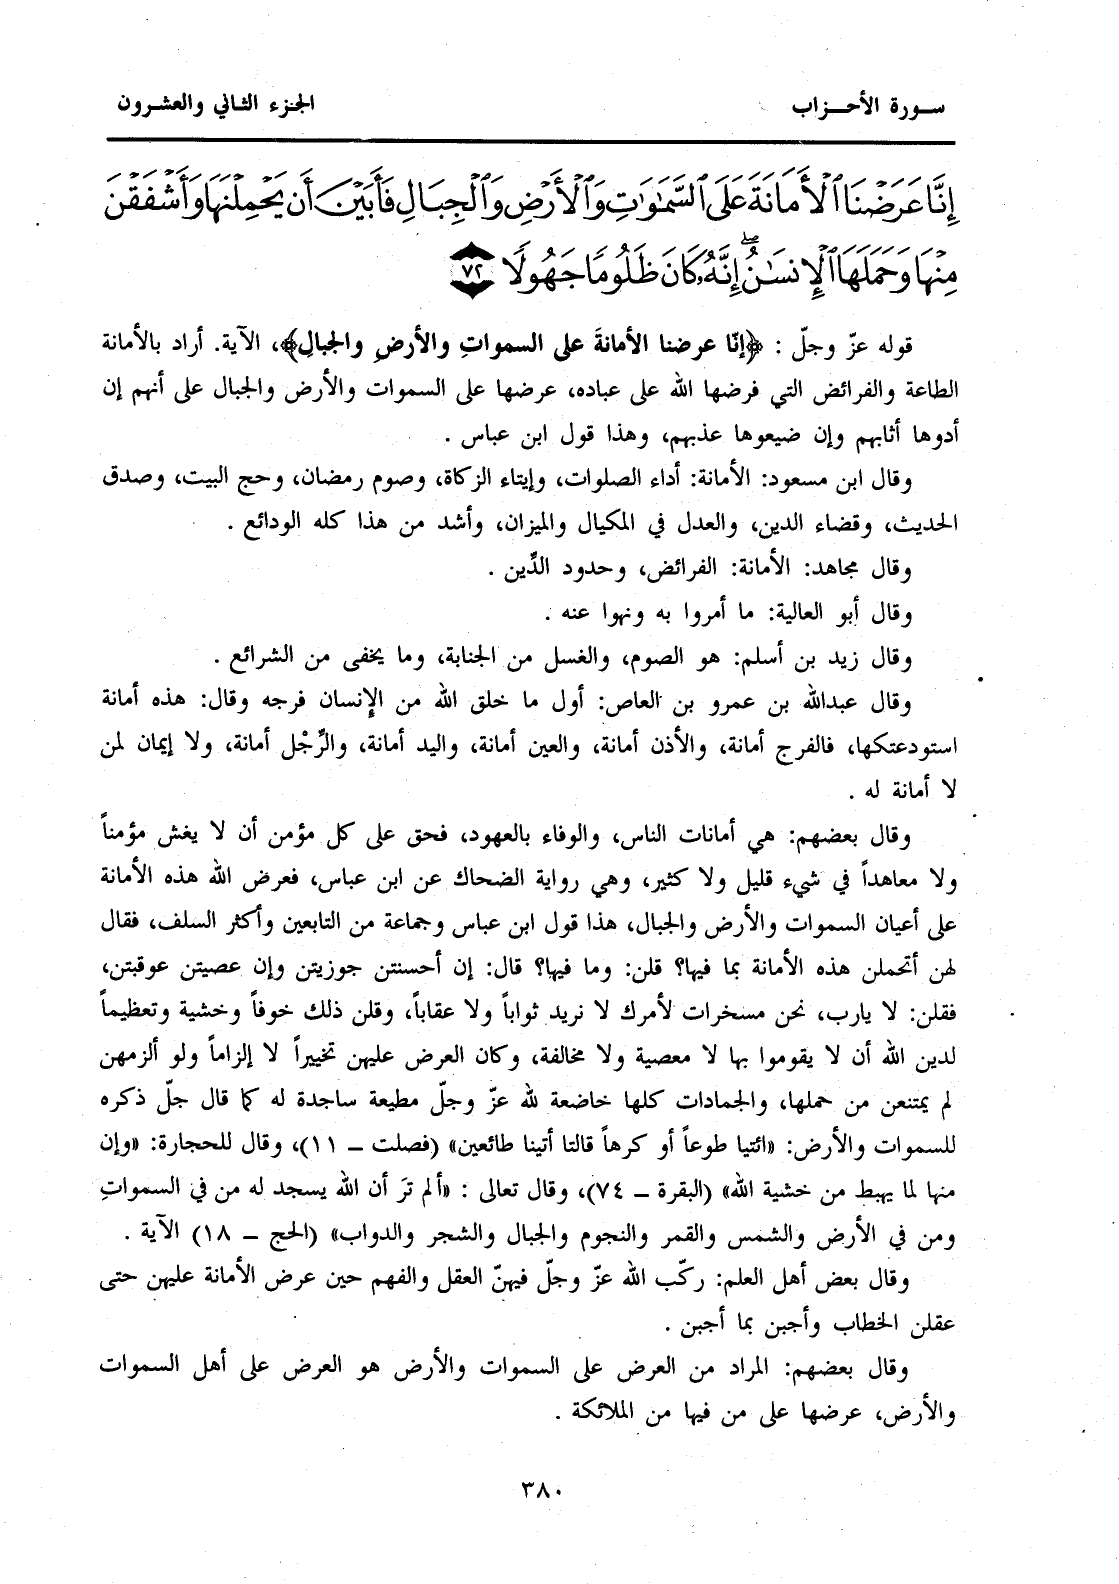 سورة الأحزاب
الجزء الثاني والعشرون
إِنَّا عَرَضْنَا ٱلْأَمَانَةَ عَلَى ٱلسَّمَٰوَٰتِ وَٱلْأَرْضِ وَٱلْجِبَالِ فَأَبَيْنَ أَن يَحْمِلْنَهَا وَأَشْفَقْنَ
مِنْهَا وَحَمَلَهَا ٱلْإِنسَٰنُ ۖ إِنَّهُۥ كَانَ ظَلُومًا جَهُولًا ٧٢
قوله عزّ وجلّ : ﴿إنّا عرضنا الأمانةَ على السمواتِ والأرضِ والجبالِ﴾، الآية. أراد بالأمانة
الطاعة والفرائض التي فرضها الله على عباده، عرضها على السموات والأرض والجبال على أنهم إن
أدوها أثابهم وإن ضيعوها عذبهم، وهذا قول ابن عباس .
وقال ابن مسعود: الأمانة: أداء الصلوات، وإيتاء الزكاة، وصوم رمضان، وحج البيت، وصدق
الحديث، وقضاء الدين، والعدل في المكيال والميزان، وأشد من هذا كله الودائع .
وقال مجاهد: الأمانة: الفرائض، وحدود الدِّين .
وقال أبو العالية: ما أمروا به ونهوا عنه .
وقال زيد بن أسلم: هو الصوم، والغسل من الجنابة، وما يخفى من الشرائع .
وقال عبدالله بن عمرو بن العاص: أول ما خلق الله من الإنسان فرجه وقال: هذه أمانة
استودعتكها، فالفرج أمانة، والأذن أمانة، والعين أمانة، واليد أمانة، والرِّجْل أمانة، ولا إيمان لمن
لا أمانة له .
وقال بعضهم: هي أمانات الناس، والوفاء بالعهود، فحق على كل مؤمن أن لا يغش مؤمناً
ولا معاهداً في شيء قليل ولا كثير، وهي رواية الضحاك عن ابن عباس، فعرض الله هذه الأمانة
على أعيان السموات والأرض والجبال، هذا قول ابن عباس وجماعة من التابعين وأكثر السلف، فقال
لهن أتحملن هذه الأمانة بما فيها؟ قلن: وما فيها؟ قال: إن أحسنتن جوزيتن وإن عصيتن عوقبتن،
فقلن: لا يارب، نحن مسخرات لأمرك لا نريد ثواباً ولا عقاباً، وقلن ذلك خوفاً وخشية وتعظيماً
لدين الله أن لا يقوموا بها لا معصية ولا مخالفة، وكان العرض عليهن تخييراً لا إلزاماً ولو ألزمهن
لم يمتنعن من حملها، والجمادات كلها خاضعة لله عزّ وجلّ مطيعة ساجدة له كما قال جلّ ذكره
للسموات والأرض: «ائتيا طوعاً أو كرهاً قالتا أتينا طائعين» (فصلت – ١١)، وقال للحجارة: «وإن
منها لما يهبط من خشية الله» (البقرة – ٧٤)، وقال تعالى : «ألم ترَ أن الله يسجد له من في السمواتِ
ومن في الأرض والشمس والقمر والنجوم والجبال والشجر والدواب» (الحج – ١٨) الآية .
وقال بعض أهل العلم: ركّب الله عزّ وجلّ فيهنّ العقل والفهم حين عرض الأمانة عليهن حتى
عقلن الخطاب وأجبن بما أجبن .
وقال بعضهم: المراد من العرض على السموات والأرض هو العرض على أهل السموات
والأرض، عرضها على من فيها من الملائكة .
٣٨٠